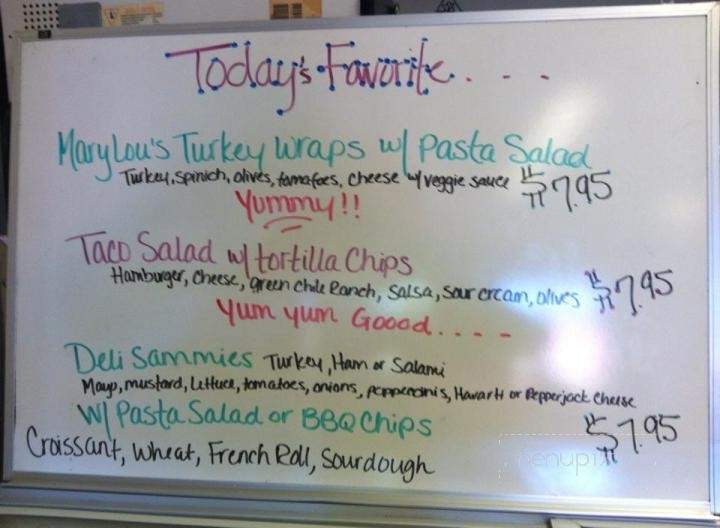 Today's Favorite. . . .
MaryLou's Turkey Wraps w/ Pasta Salad
Turkey, Spinich, olives, tomatoes, cheese w/ veggie sauce $7.95
Yummy!!
Taco Salad w/ tortilla Chips
Hamburger, Cheese, green Chile Ranch, Salsa, Sour cream, olives $7.95
Yum yum Goood. . . . -
Deli Sammies Turkey, Ham or Salami
Mayo, mustard, Lettuce, tomatoes, onions, pepperdnis, Havarti or Pepperjack Cheese
W/ Pasta Salad or BBQ Chips $7.95
Croissant, Wheat, French Roll, Sourdough
menupix